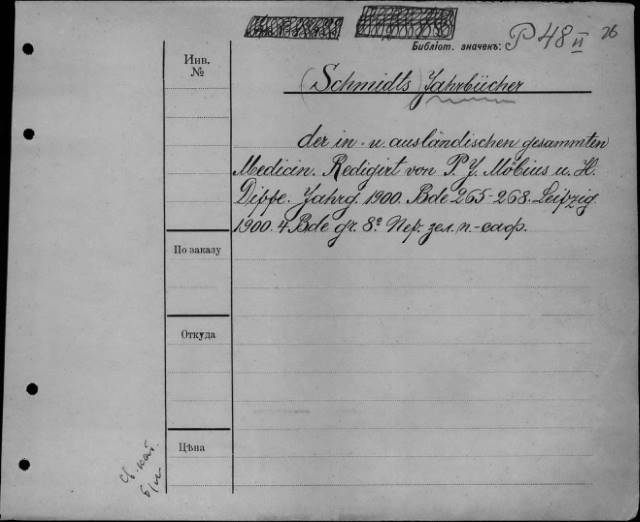 Библіот. значекъ: P 48 II 26
Инв. №
(Schmidts) Jahrbücher
der in- u. ausländischen gesammten
Medicin. Redigirt von P. J. Möbius u. H.
Dippe. Jahrg. 1900. Bde 265-268. Leipzig.
1900. 4 Bde gr. 8º Пер. зел. п.-саф.
По заказу
Откуда
Цѣна